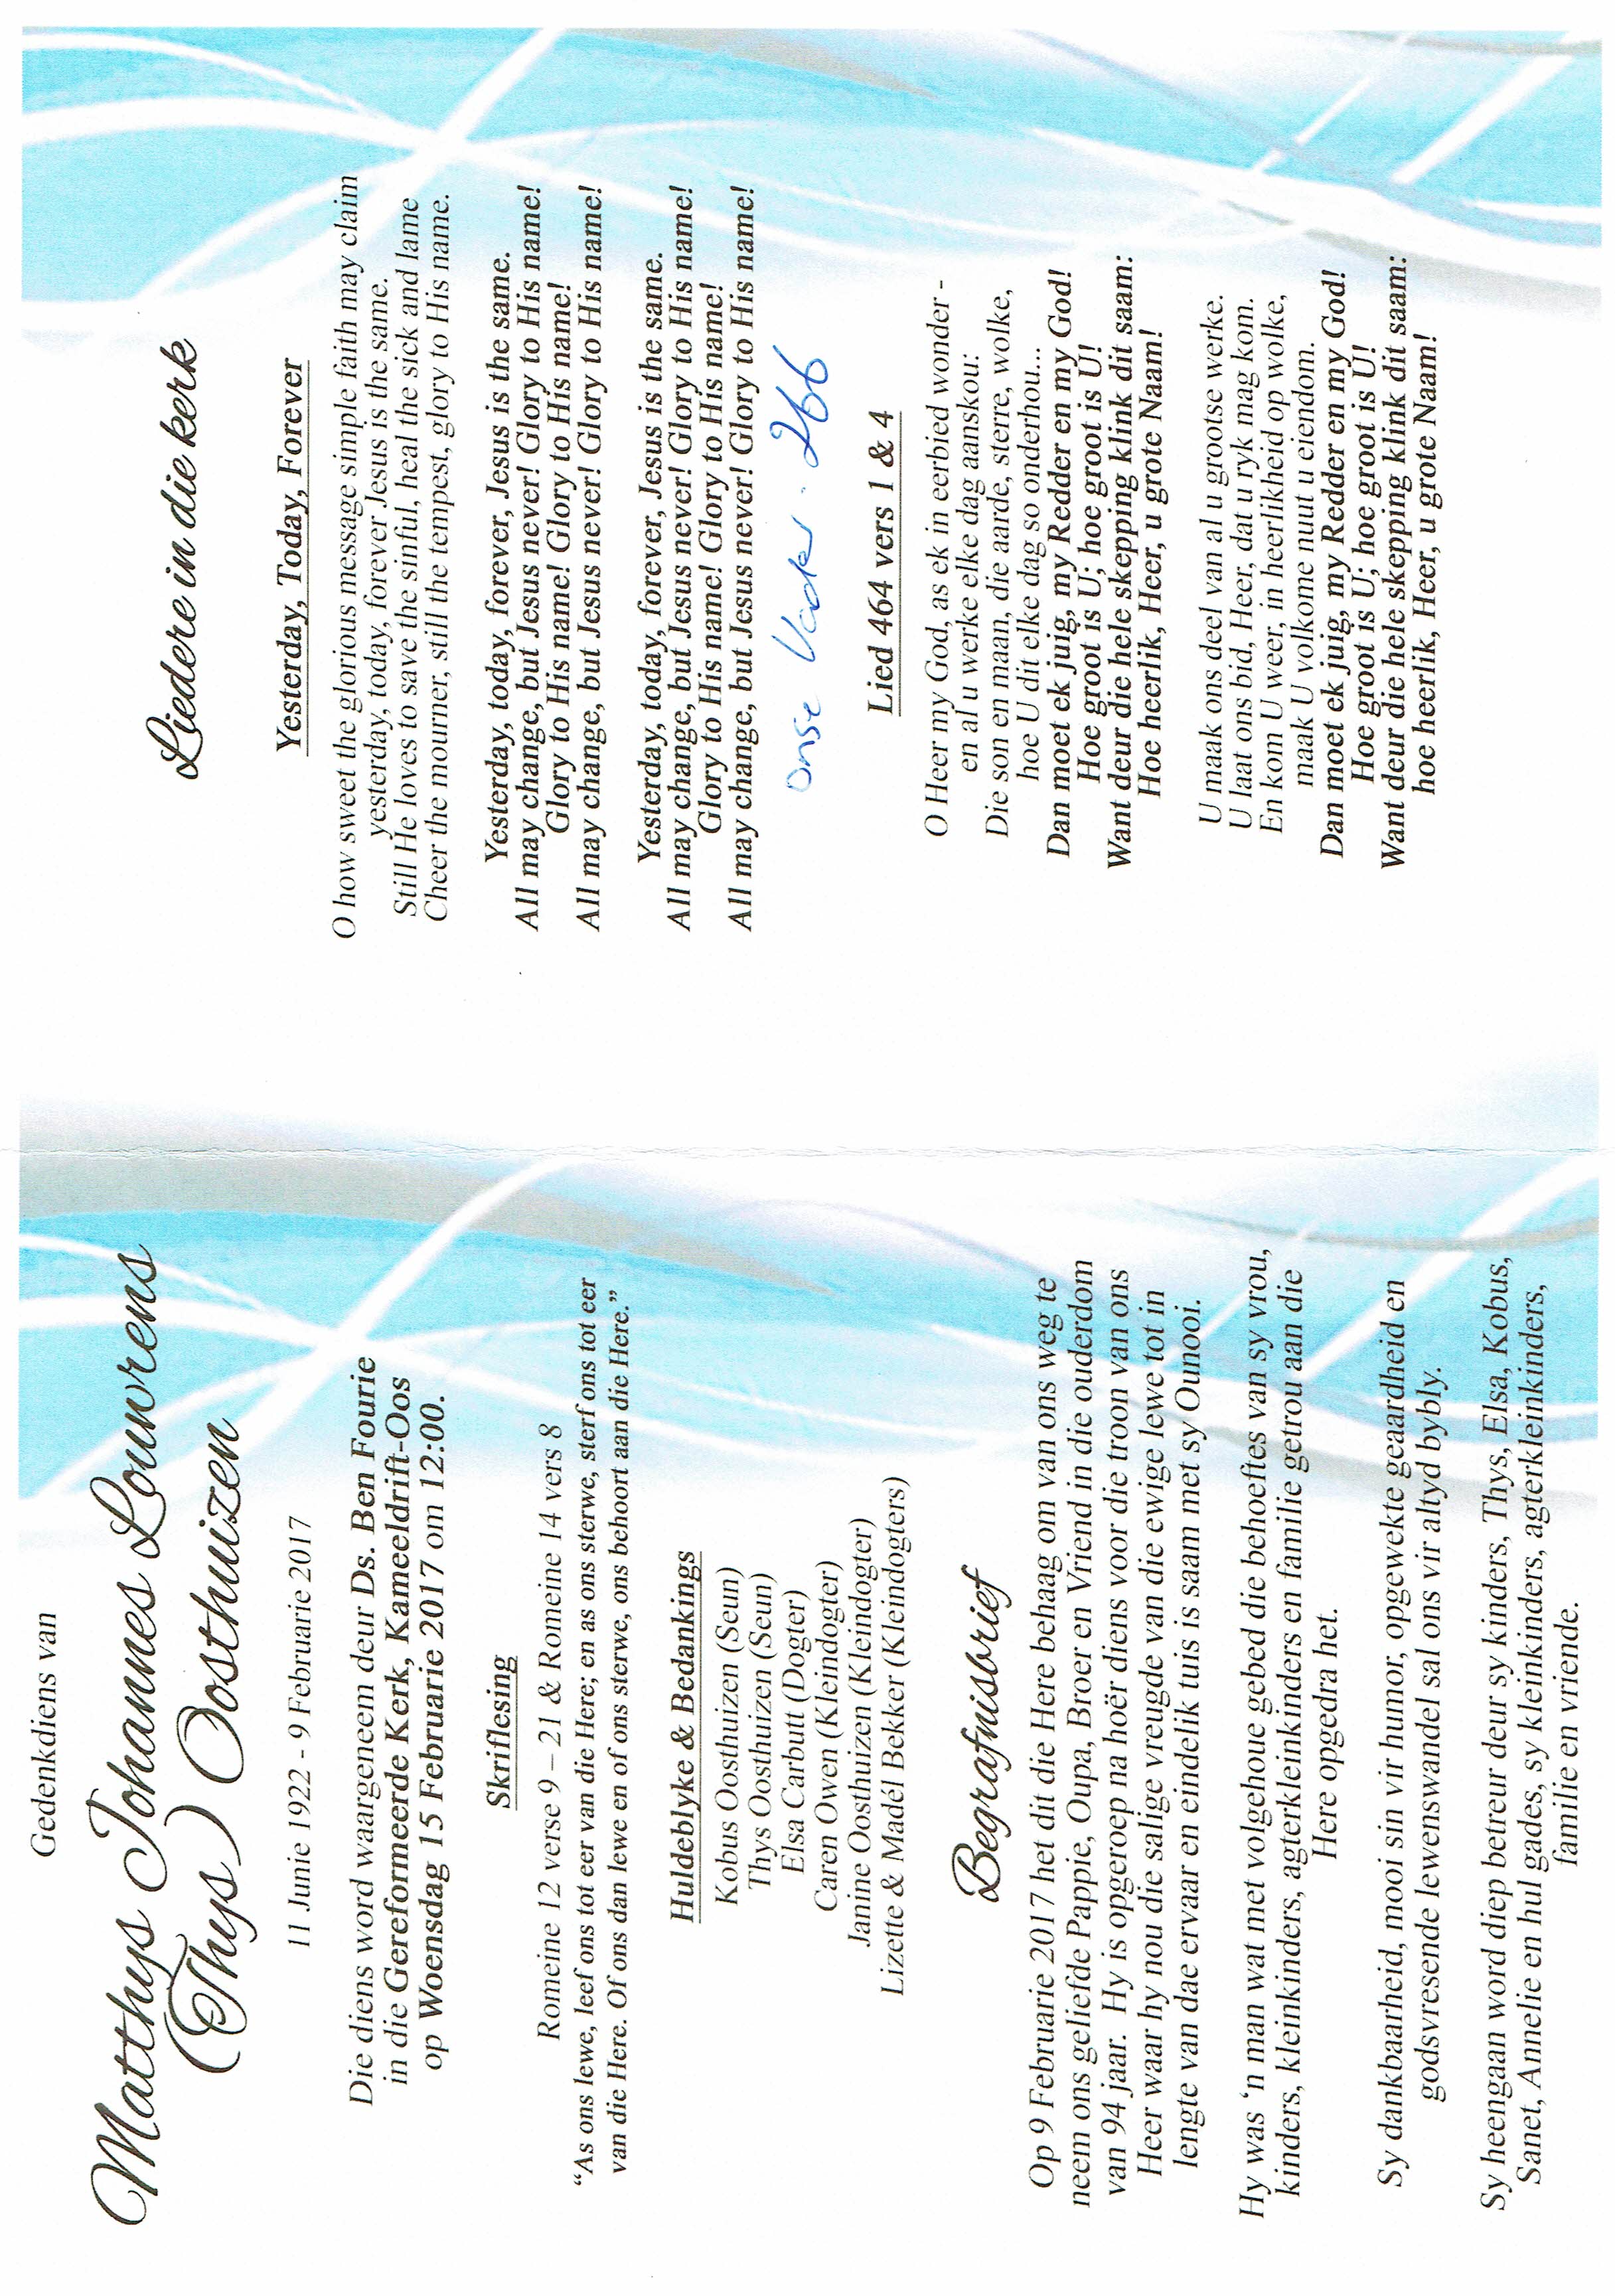 Gedenkdiens van
Matthys Johannes Louwrens
(Thys) Oosthuizen
11 Junie 1922 - 9 Februarie 2017
Die diens word waargeneem deur Ds. Ben Fourie
in die Gereformeerde Kerk, Kameeldrift-Oos
op Woensdag 15 Februarie 2017 om 12:00.
Skriflesing
Romeine 12 verse 9 – 21 & Romeine 14 vers 8
“As ons lewe, leef ons tot eer van die Here; en as ons sterwe, sterf ons tot eer
van die Here. Of ons dan lewe en of ons sterwe, ons behoort aan die Here.”
Huldeblyke & Bedankings
Kobus Oosthuizen (Seun)
Thys Oosthuizen (Seun)
Elsa Carbutt (Dogter)
Caren Owen (Kleindogter)
Janine Oosthuizen (Kleindogter)
Lizette & Madél Bekker (Kleindogters)
Begrafnisbrief
Op 9 Februarie 2017 het dit die Here behaag om van ons weg te
neem ons geliefde Pappie, Oupa, Broer en Vriend in die ouderdom
van 94 jaar. Hy is opgeroep na hoër diens voor die troon van ons
Heer waar hy nou die salige vreugde van die ewige lewe tot in
lengte van dae ervaar en eindelik tuis is saam met sy Ounooi.
Hy was ‘n man wat met volgehoue gebed die behoeftes van sy vrou,
kinders, kleinkinders, agterkleinkinders en familie getrou aan die
Here opgedra het.
Sy dankbaarheid, mooi sin vir humor, opgewekte geaardheid en
godsvresende lewenswandel sal ons vir altyd bybly.
Sy heengaan word diep betreur deur sy kinders, Thys, Elsa, Kobus,
Sanet, Annelie en hul gades, sy kleinkinders, agterkleinkinders,
familie en vriende.
Liedere in die kerk
Yesterday, Today, Forever
O how sweet the glorious message simple faith may claim
yesterday, today, forever Jesus is the same.
Still He loves to save the sinful, heal the sick and lame
Cheer the mourner, still the tempest, glory to His name.
Yesterday, today, forever, Jesus is the same.
All may change, but Jesus never! Glory to His name!
Glory to His name! Glory to His name!
All may change, but Jesus never! Glory to His name!
Yesterday, today, forever, Jesus is the same.
All may change, but Jesus never! Glory to His name!
Glory to His name! Glory to His name!
All may change, but Jesus never! Glory to His name!
Onse Vader. 266
Lied 464 vers 1 & 4
O Heer my God, as ek in eerbied wonder -
en al u werke elke dag aanskou:
Die son en maan, die aarde, sterre, wolke,
hoe U dit elke dag so onderhou...
Dan moet ek juig, my Redder en my God!
Hoe groot is U; hoe groot is U!
Want deur die hele skepping klink dit saam:
Hoe heerlik, Heer, u grote Naam!
U maak ons deel van al u grootse werke.
U laat ons bid, Heer, dat u ryk mag kom.
En kom U weer, in heerlikheid op wolke,
maak U volkome nuut u eiendom.
Dan moet ek juig, my Redder en my God!
Hoe groot is U; hoe groot is U!
Want deur die hele skepping klink dit saam:
hoe heerlik, Heer, u grote Naam!